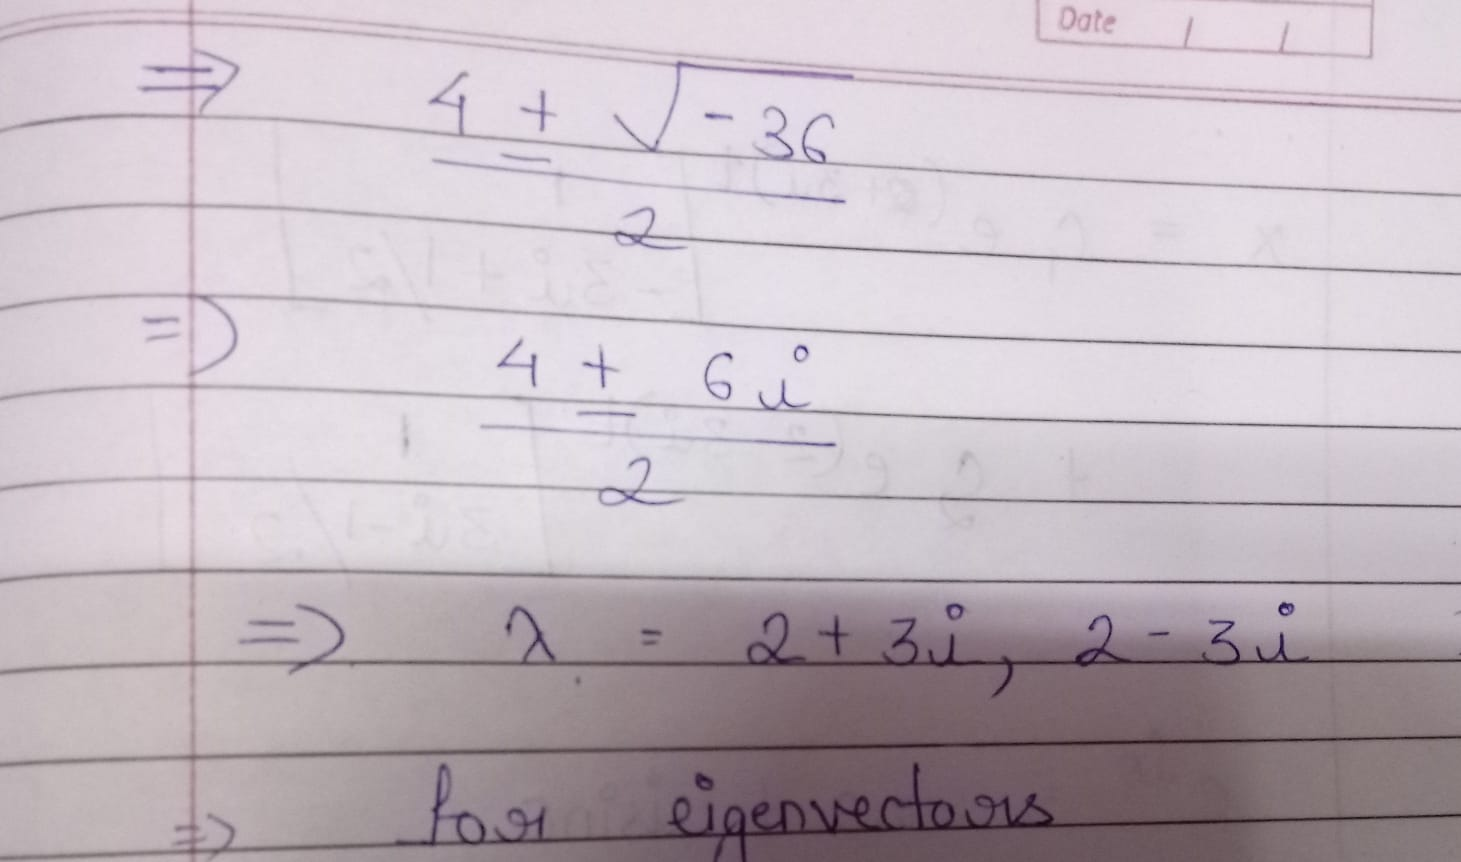 Date / /
⇒ 4 ± √-36
2
⇒ 4 ± 6i
2
⇒ λ = 2 + 3i, 2 - 3i
⇒ for eigenvectors